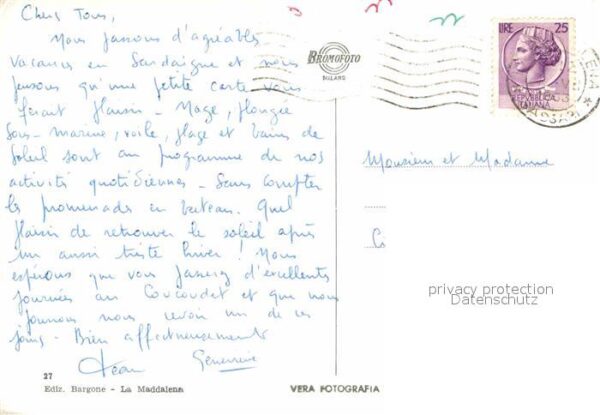 Chers Tous,
Nous passons d'agréables
vacances en Sardaigne et nous
pensons qu'une petite carte vous
ferait plaisir - Nage, plongée
sous-marine, voile, plage et bains de
soleil sont au programme de nos
activités quotidiennes - Sans compter
les promenades en bateau. Quel
plaisir de retrouver le soleil après
un aussi triste hiver ! Nous
espérons que vous passerez d'excellentes
journées au et que nous
pourrons nous revoir un de ces
jours - Bien affectueusement
Jean Geneviève
27
Ediz. Bargone - La Maddalena
VERA FOTOGRAFIA
BROMOFOTO
MILANO
LIRE 25
REPVBBLICA
ITALIANA
Monsieur et Madame
privacy protection
Datenschutz